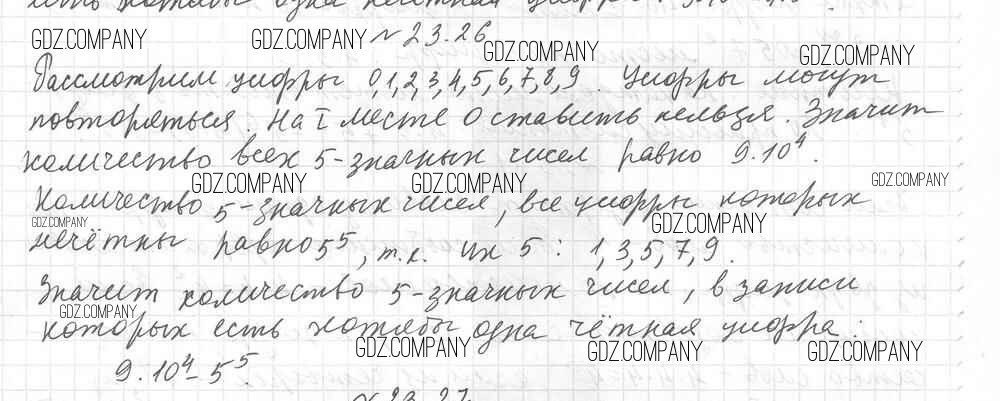 есть хотябы одна нечётная цифра:
GDZ.COMPANY GDZ.COMPANY № 23.26 GDZ.COMPANY GDZ.COMPANY
Рассмотрим цифры 0,1,2,3,4,5,6,7,8,9. Цифры могут
повторяться. На I месте 0 ставить нельзя. Значит
количество всех 5-значных чисел равно 9·10⁴.
GDZ.COMPANY GDZ.COMPANY GDZ.COMPANY
Количество 5-значных чисел, все цифры которых
GDZ.COMPANY GDZ.COMPANY
нечётны равно 5⁵, т.к. их 5: 1,3,5,7,9.
Значит количество 5-значных чисел, в записи
GDZ.COMPANY
которых есть хотябы одна чётная цифра:
GDZ.COMPANY GDZ.COMPANY GDZ.COMPANY
9·10⁴-5⁵.
№ 23.27